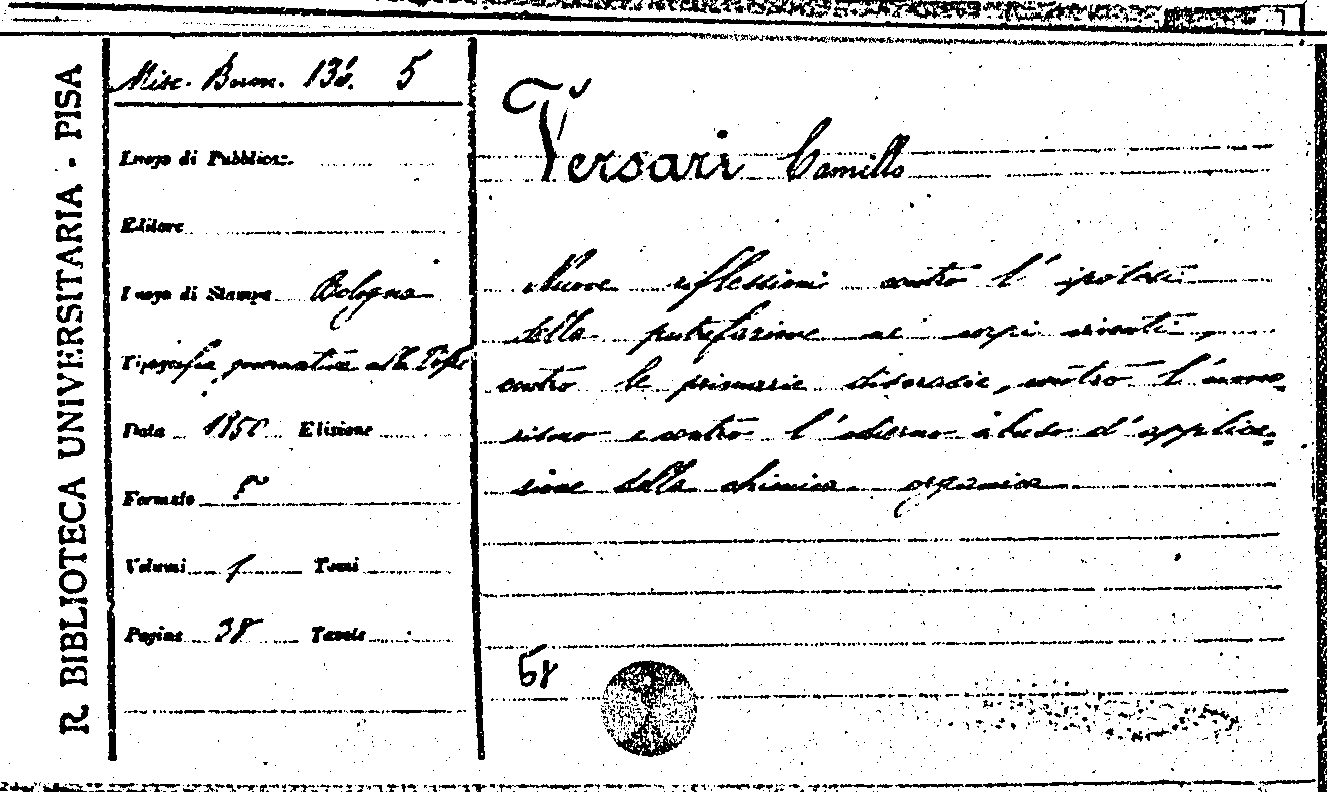 R. BIBLIOTECA UNIVERSITARIA - PISA
Misc. Buon. 136. 5
Luogo di Pubblicaz.
Editore
Luogo di Stampa Bologna
Tipografia governativa alla Volpe
Data 1850 Edizione
Formato 8°
Volumi 1 Tomi
Pagine 38 Tavole
Versari Camillo
Nuove riflessioni contro l' ipotesi
della putrefazione nei corpi viventi,
contro le primarie discrasie, contro l'umo=
rismo e contro l'odierno abuso d'applica=
zione della chimica organica
58